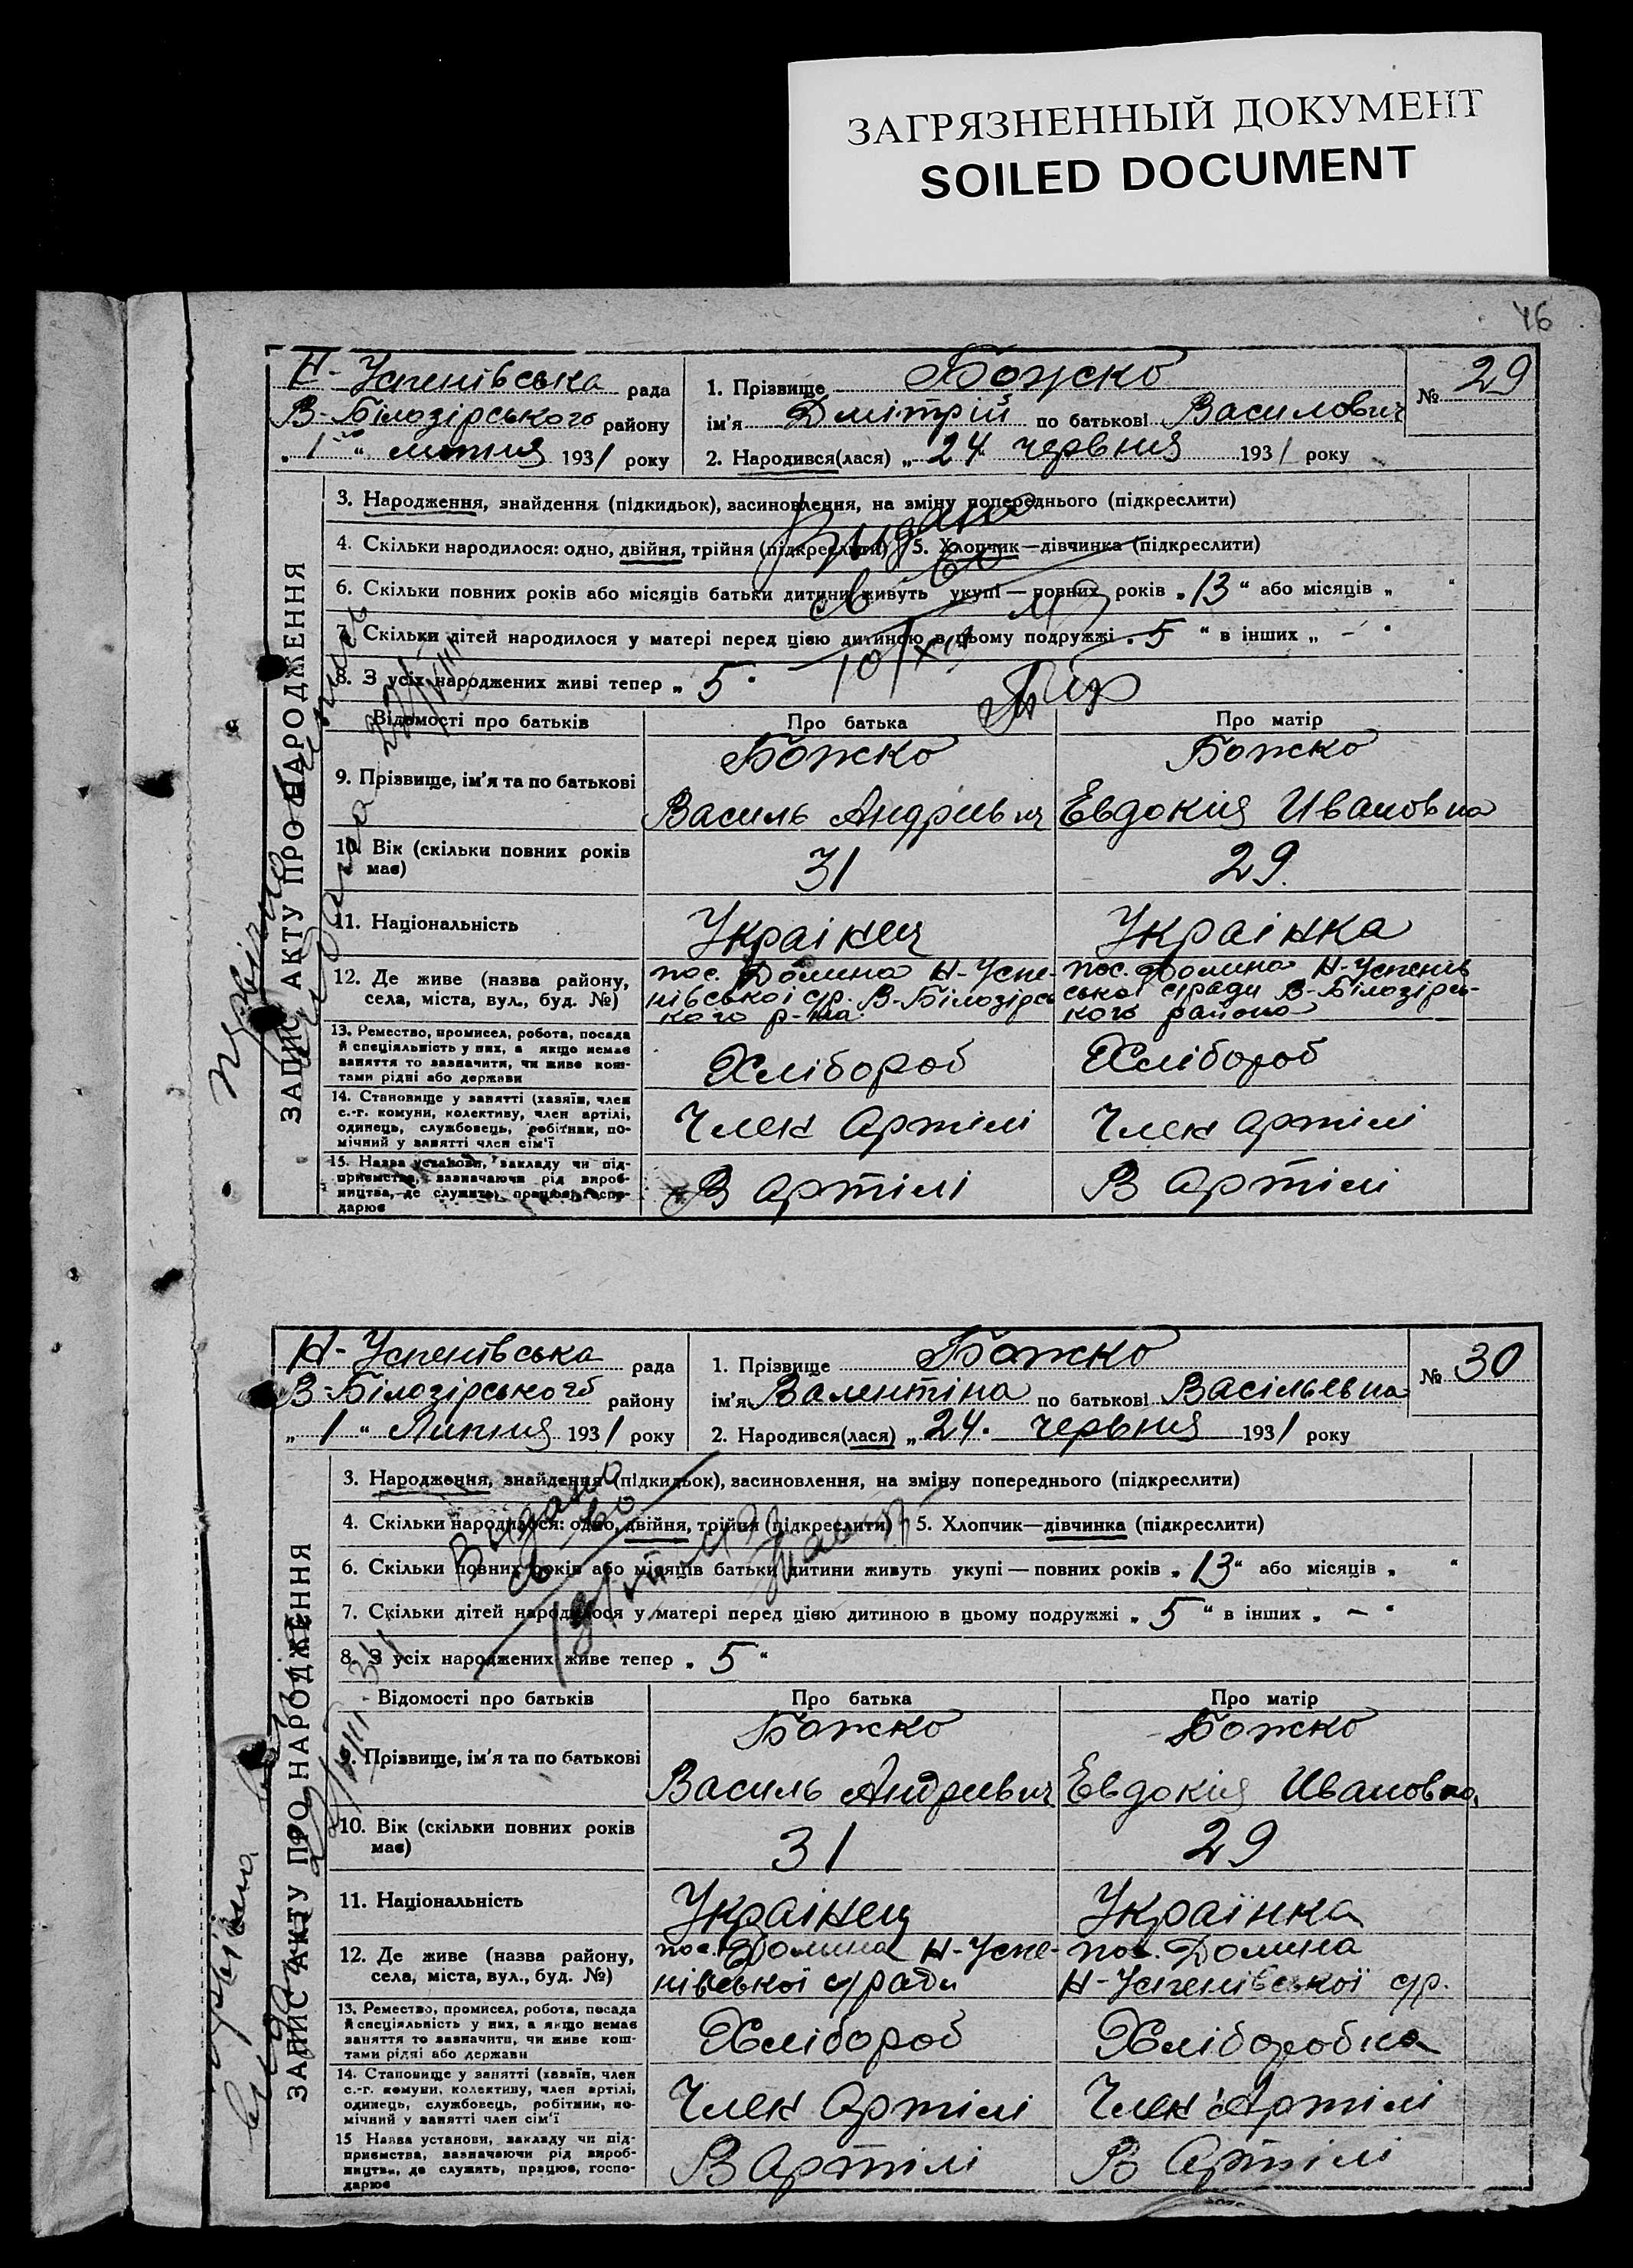 ЗАГРЯЗНЕННЫЙ ДОКУМЕНТ
SOILED DOCUMENT
46
Н-Успенівська рада
В-Білозірського району
„ 1 “ липня 1931 року
1. Прізвище Божко
ім'я Дмітрій по батькові Василович
№ 29
2. Народився(лася) „ 24 червня 1931 року
ЗАПИС АКТУ ПРО НАРОДЖЕННЯ
3. Народження, знайдення (підкидьок), засиновлення, на зміну попереднього (підкреслити)
4. Скільки народилося: одно, двійня, трійня (підкреслити) 5. Хлопчик—дівчинка (підкреслити)
6. Скільки повних років або місяців батьки дитини живуть укупі — повних років „ 13 “ або місяців „ “
7. Скільки дітей народилося у матері перед цією дитиною в цьому подружжі „ 5 “ в інших „ — “
8. З усіх народжених живі тепер „ 5 “
Видано
Відомості про батьків Про батька Про матір
9. Прізвище, ім'я та по батькові
Божко
Василь Андриевич
Божко
Евдокия Ивановна
10. Вік (скільки повних років
має)
31
29.
11. Національність
Украінец
Украінка
12. Де живе (назва району,
села, міста, вул., буд. №)
пос. Долина Н-Успе-
нівськоі с/р. В-Білозірсь
кого р-на
пос. Долина Н-Успенів
ськоі с/ради В-Білозірсь-
кого района
13. Ремество, промисел, робота, посада
й спеціяльність у них, а якщо немає
заняття то зазначити, чи живе кош-
тами рідні або держави
Хлібороб
Хлібороб
14. Становище у занятті (хазяїн, член
с.-г. комуни, колективу, член артілі,
одинець, службовець, робітник, по-
мічний у занятті член сім'ї
Член артілі
Член артілі
15. Назва установи, закладу чи під-
приємства, зазначаючи рід вироб-
ництва, де служить, працює, госпо-
дарює
В артілі
В артілі
Н-Успенівська рада
В-Білозірського району
„ 1 “ Липня 1931 року
1. Прізвище Божко
ім'я Валентіна по батькові Васільевна
№ 30
2. Народився(лася) „ 24. червня 1931 року
ЗАПИС АКТУ ПРО НАРОДЖЕННЯ
3. Народження, знайдення (підкидьок), засиновлення, на зміну попереднього (підкреслити)
4. Скільки народилося: одно, двійня, трійня (підкреслити) 5. Хлопчик—дівчинка (підкреслити)
6. Скільки повних років або місяців батьки дитини живуть укупі — повних років „ 13 “ або місяців „ “
7. Скільки дітей народилося у матері перед цією дитиною в цьому подружжі „ 5 “ в інших „ — “
8. З усіх народжених живе тепер „ 5 “
Видано
Відомості про батьків Про батька Про матір
9. Прізвище, ім'я та по батькові
Божко
Василь Андреевич
Божко
Евдокия Ивановна
10. Вік (скільки повних років
має)
31
29
11. Національність
Украінец
Українка
12. Де живе (назва району,
села, міста, вул., буд. №)
пос. Долина Н-Успе-
нівської с/ради
пос. Долина
Н-Успенівської с/р.
13. Ремество, промисел, робота, посада
й спеціяльність у них, а якщо немає
заняття то зазначити, чи живе кош-
тами рідні або держави
Хлібороб
Хліборобка
14. Становище у занятті (хазяїн, член
с.-г. комуни, колективу, член артілі,
одинець, службовець, робітник, по-
мічний у занятті член сім'ї
Член Артілі
Член Артілі
15 Назва установи, закладу чи під-
приємства, зазначаючи рід вироб-
ництва, де служить, працює, госпо-
дарює
В Артілі
В Артілі